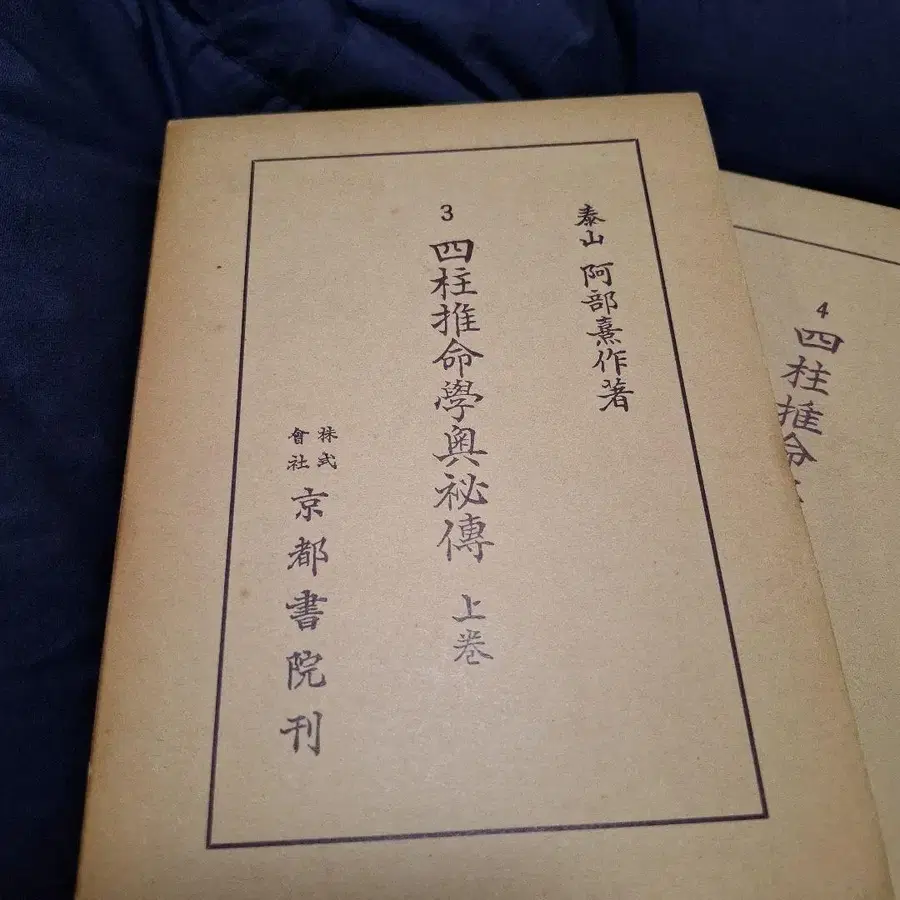 泰山 阿部熹作著
3 四柱推命學奥祕傳 上巻
株式會社 京都書院刊
4 四柱推命